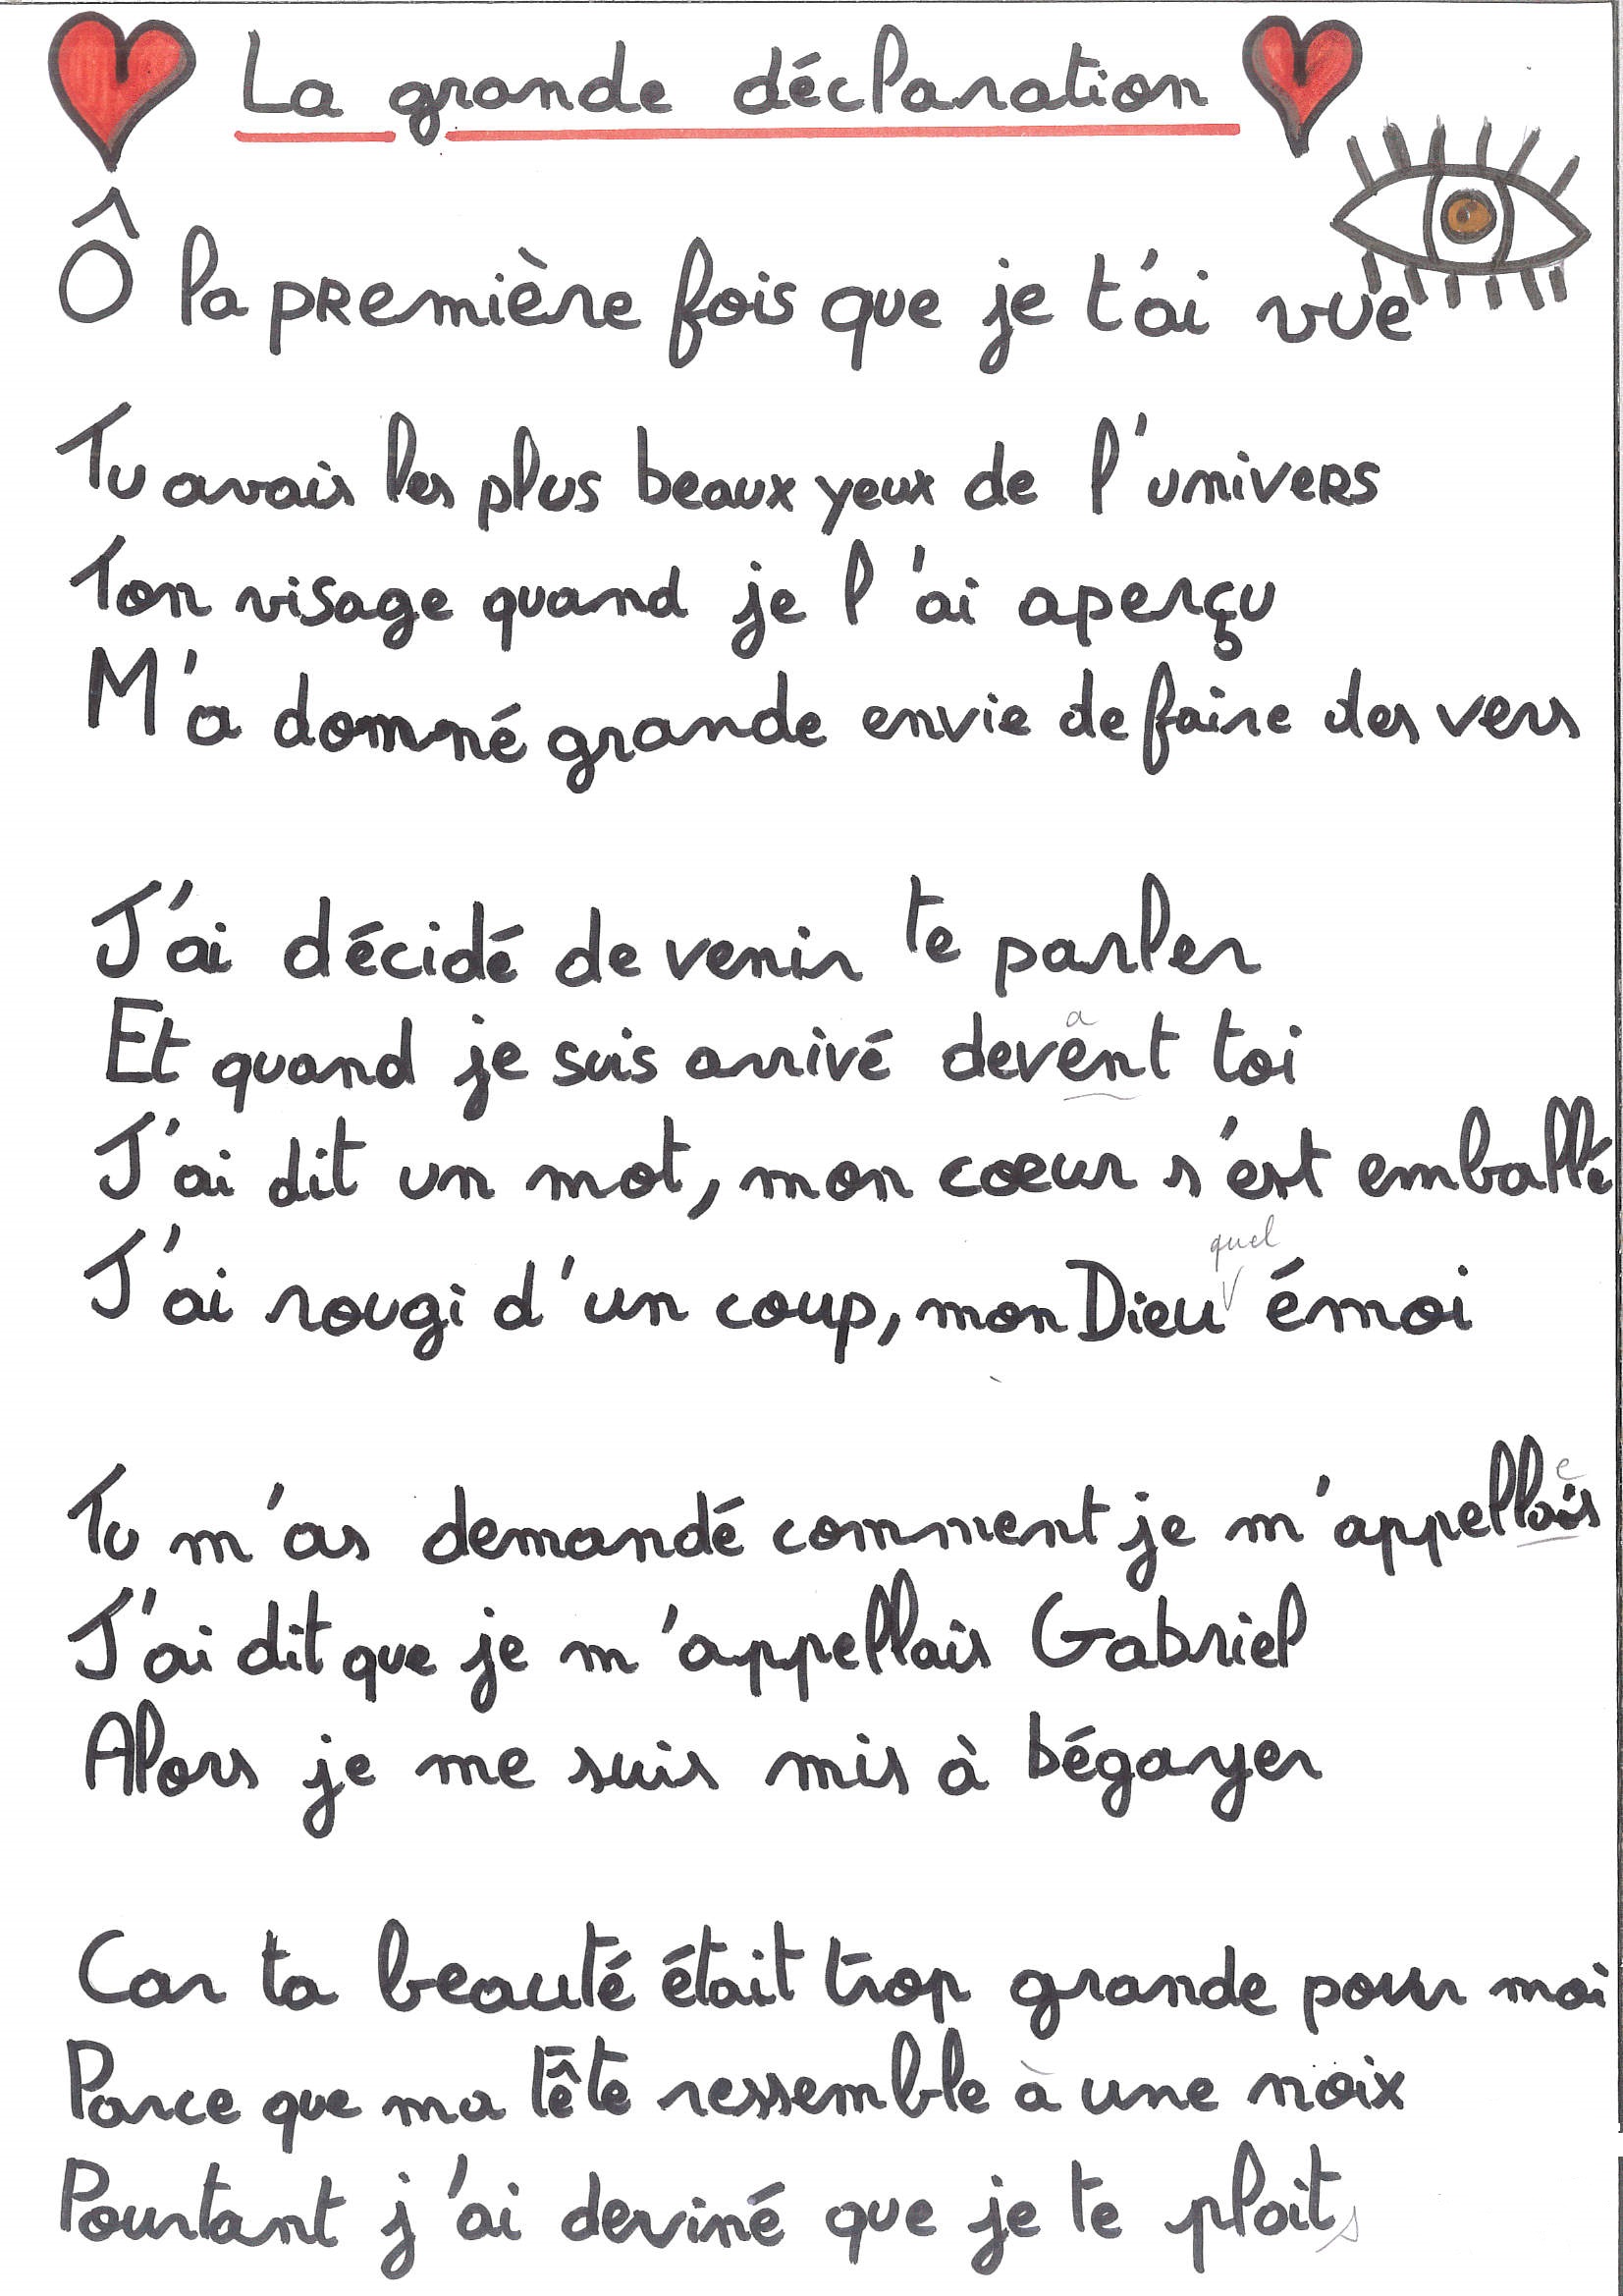 La grande déclaration
Ô la première fois que je t'ai vue
Tu avais les plus beaux yeux de l'univers
Ton visage quand je l'ai aperçu
M'a donné grande envie de faire des vers
J'ai décidé de venir te parler
a
Et quand je suis arrivé devent toi
J'ai dit un mot, mon cœur s'est emballé
quel
J'ai rougi d'un coup, mon Dieu émoi
e
Tu m'as demandé comment je m'appellais
J'ai dit que je m'appellais Gabriel
Alors je me suis mis à bégayer
Car ta beauté était trop grande pour moi
Parce que ma tête ressemble à une noix
Pourtant j'ai deviné que je te plait s